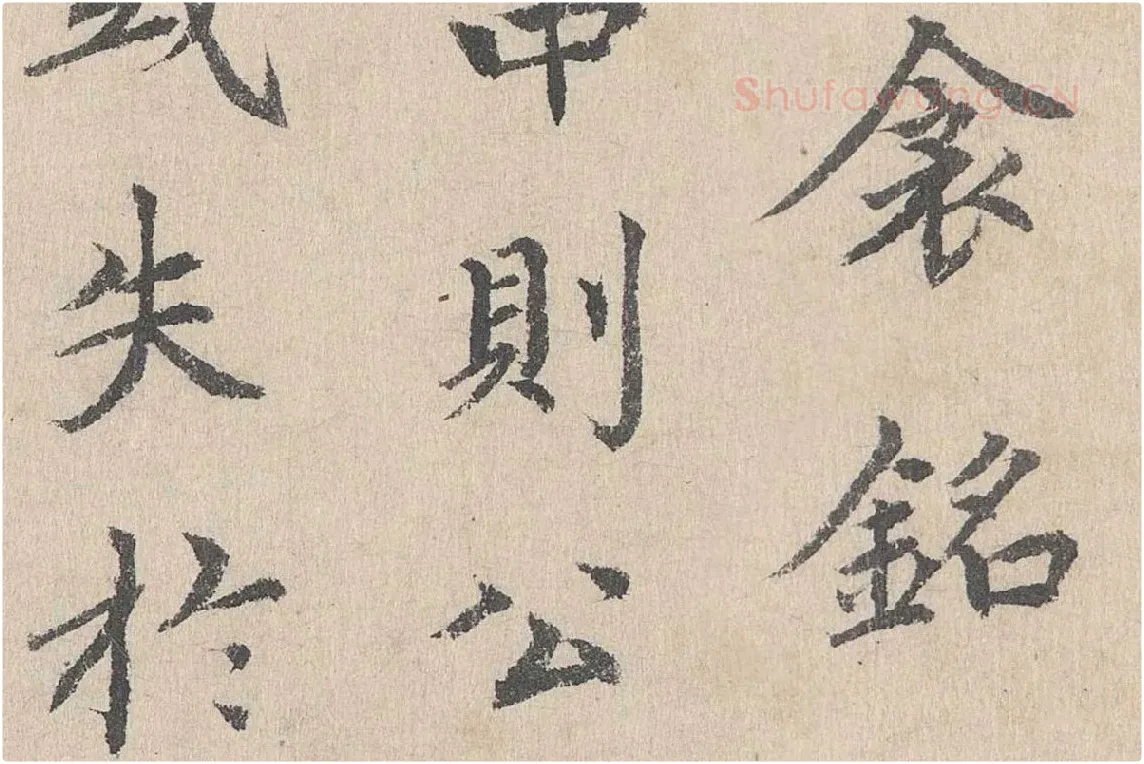 Shufawang.CN
衾銘
則公
失於